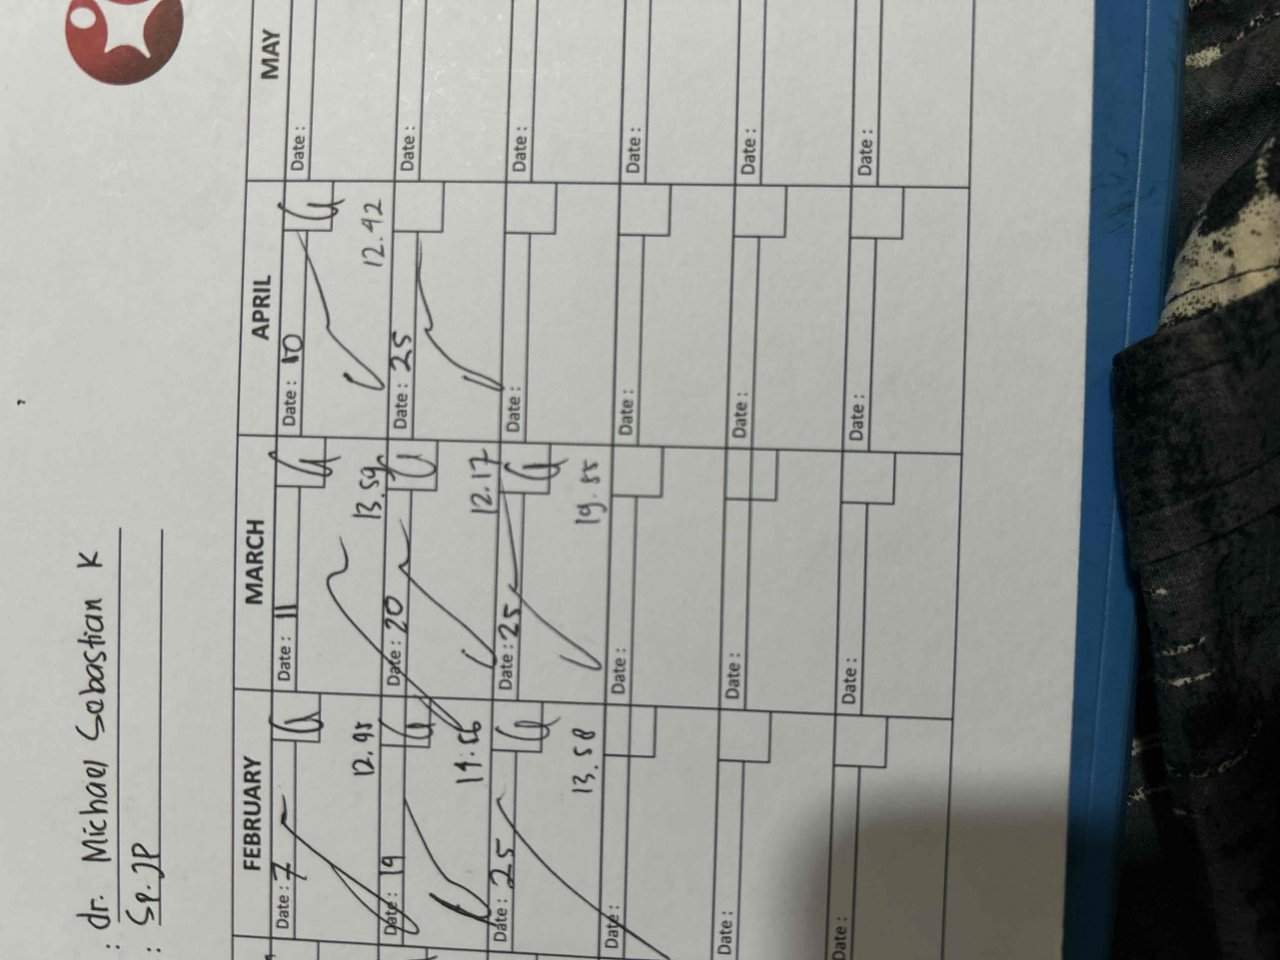 : dr. Michael Sebastian K
: Sp. JP
FEBRUARY MARCH APRIL MAY
Date : 7 Date : 11 Date : 10 Date :
12.45 13.59 12.42
Date : 19 Date : 20 Date : 25 Date :
12.17
Date : 25 Date : 25 Date : Date :
13.58 19.55
Date : Date : Date : Date :
Date : Date : Date : Date :
Date : Date : Date : Date :